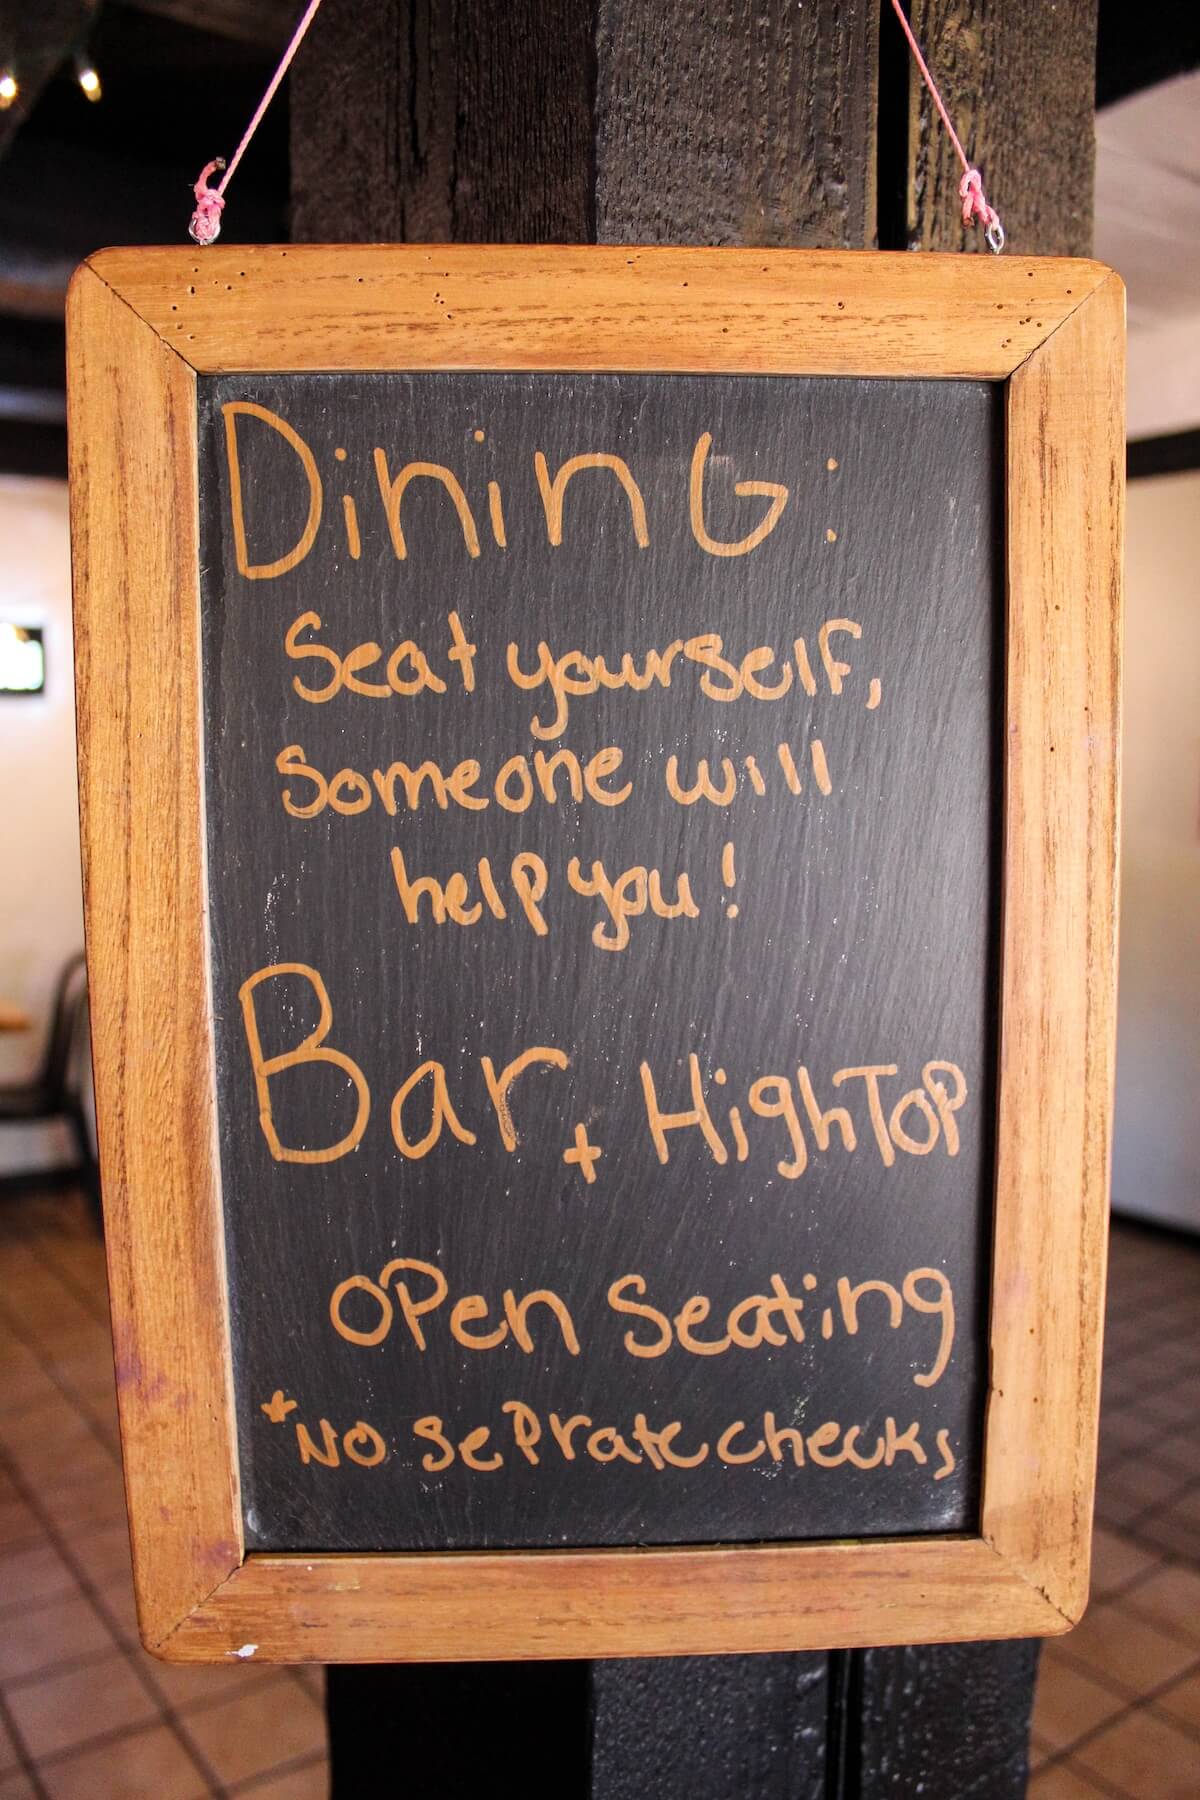 Dining:
Seat yourself,
someone will
help you!
Bar + HighTop
open Seating
*No seprate checks